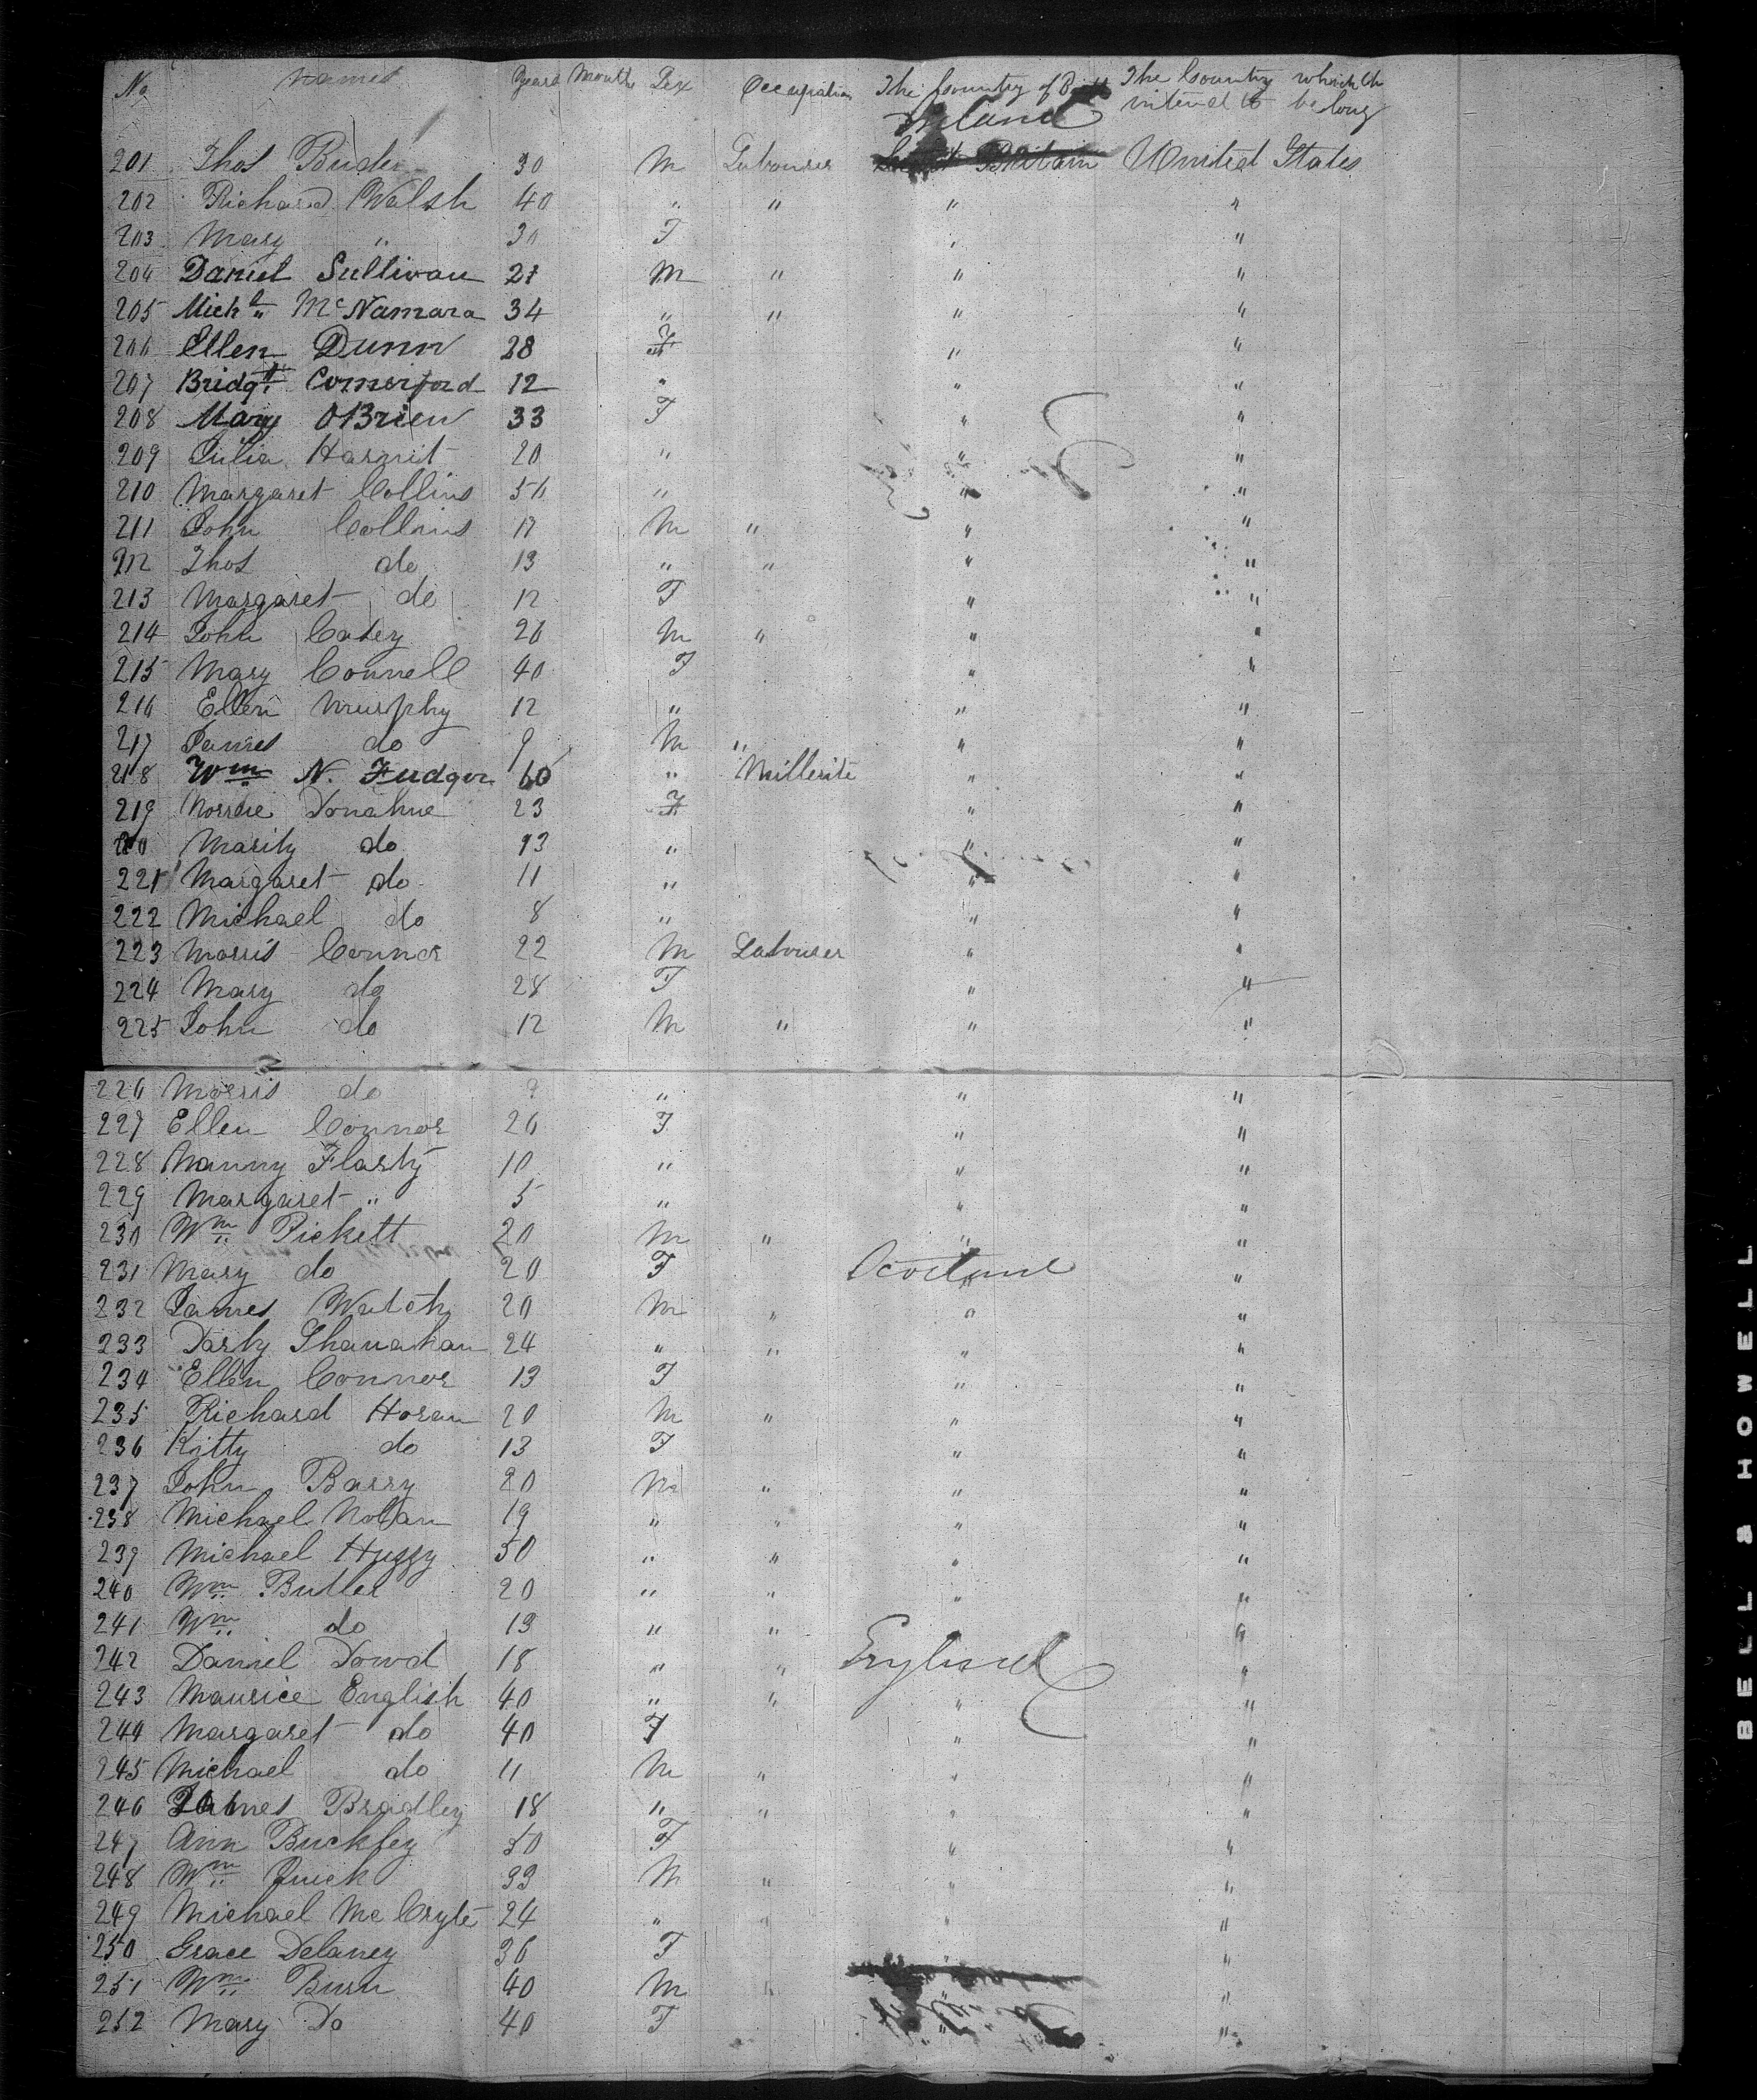 No Names Years Months Sex Occupation The Country of Birth The Country which the
intend to belong
Ireland
201 Thos 30 M Labourer Britain United States
202 Richard Walsh 40 " " " "
203 Mary " 30 F " "
204 Daniel Sullivan 27 M " " "
205 Michl McNamara 34 " " " "
206 Ellen Dunn 28 F " "
207 Bridgt Comerford 12 " " "
208 Mary OBrien 33 F " "
209 Julia 20 " " "
210 Margaret Collins 56 " " "
211 John Collins 17 M " " "
212 Thos do 13 " " " "
213 Margaret do 12 F " "
214 John 26 M " " "
215 Mary Connell 40 F " "
216 Ellen Murphy 12 " " "
217 James do 9 M " " "
218 Wm N. 60 " Millerite " "
219 Donahue 23 F " "
do 13 " " "
221 Margaret do 11 " " "
222 Michael do 8 " " "
223 Morris Connor 22 M Labourer " "
224 Mary do 28 F " "
225 John do 12 M " " "
226 Morris do 9 " " "
227 Ellen Connor 26 F " "
228 Nanny Flarty 10 " " "
229 Margaret " 5 " " "
230 Wm Pickett 20 M " " "
231 Mary do 20 F Scotland "
232 James 20 M " " "
233 Darby Shanahan 24 " " " "
234 Ellen Connor 13 F " "
235 Richard Horan 20 M " " "
236 Kitty do 13 F " "
237 John Barry 20 M " " "
238 Michael Nolan 19 " " " "
239 Michael 50 " " " "
240 Wm Butler 20 " " " "
241 Wm do 13 " " "
242 Daniel Dowd 18 " " England "
243 Maurice English 40 " " " "
244 Margaret do 40 F " "
245 Michael do 11 M " " "
246 James Bradley 18 " " " "
247 Ann Buckley 50 F " "
248 Wm Quick 33 M " " "
249 Michael Mc 24 " " " "
250 Grace Delaney 36 F "
251 Wm 40 M " "
252 Mary Do 40 F "
BELL & HOWELL